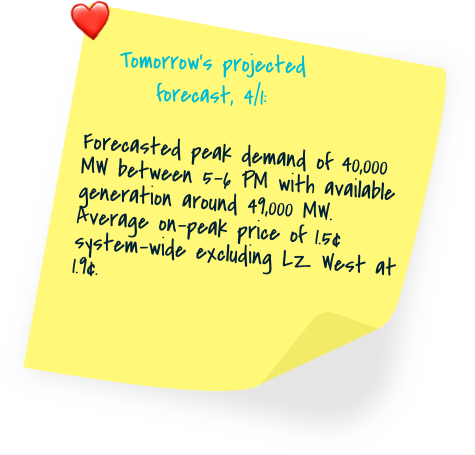 Tomorrow's projected
forecast, 4/1:
Forecasted peak demand of 40,000
MW between 5-6 PM with available
generation around 49,000 MW.
Average on-peak price of 1.5¢
system-wide excluding LZ West at
1.9¢.